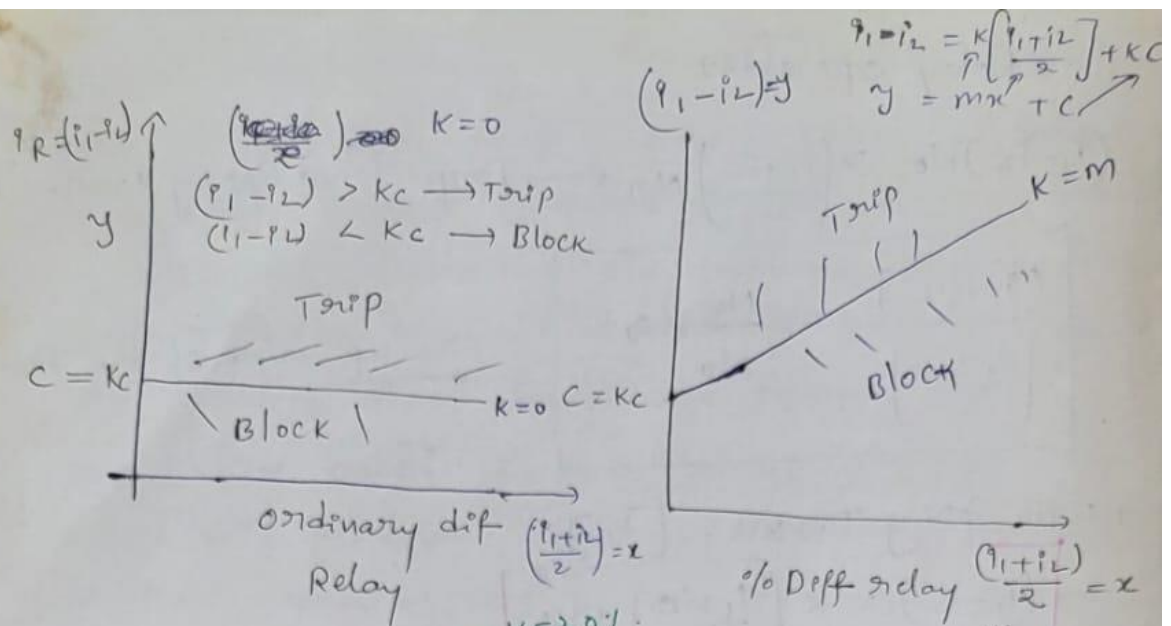 i_R = (i₁-i₂)
y
K=0
(i₁-i₂) > Kc → Trip
(i₁-i₂) < Kc → Block
Trip
C = Kc
K=0
Block
Ordinary dif
Relay
(i₁+i₂)/2 = x
i₁-i₂ = K[(i₁+i₂)/2] + KC
y = mx + C
(i₁-i₂)=y
K=m
Trip
Block
C=Kc
% Diff relay (i₁+i₂)/2 = x